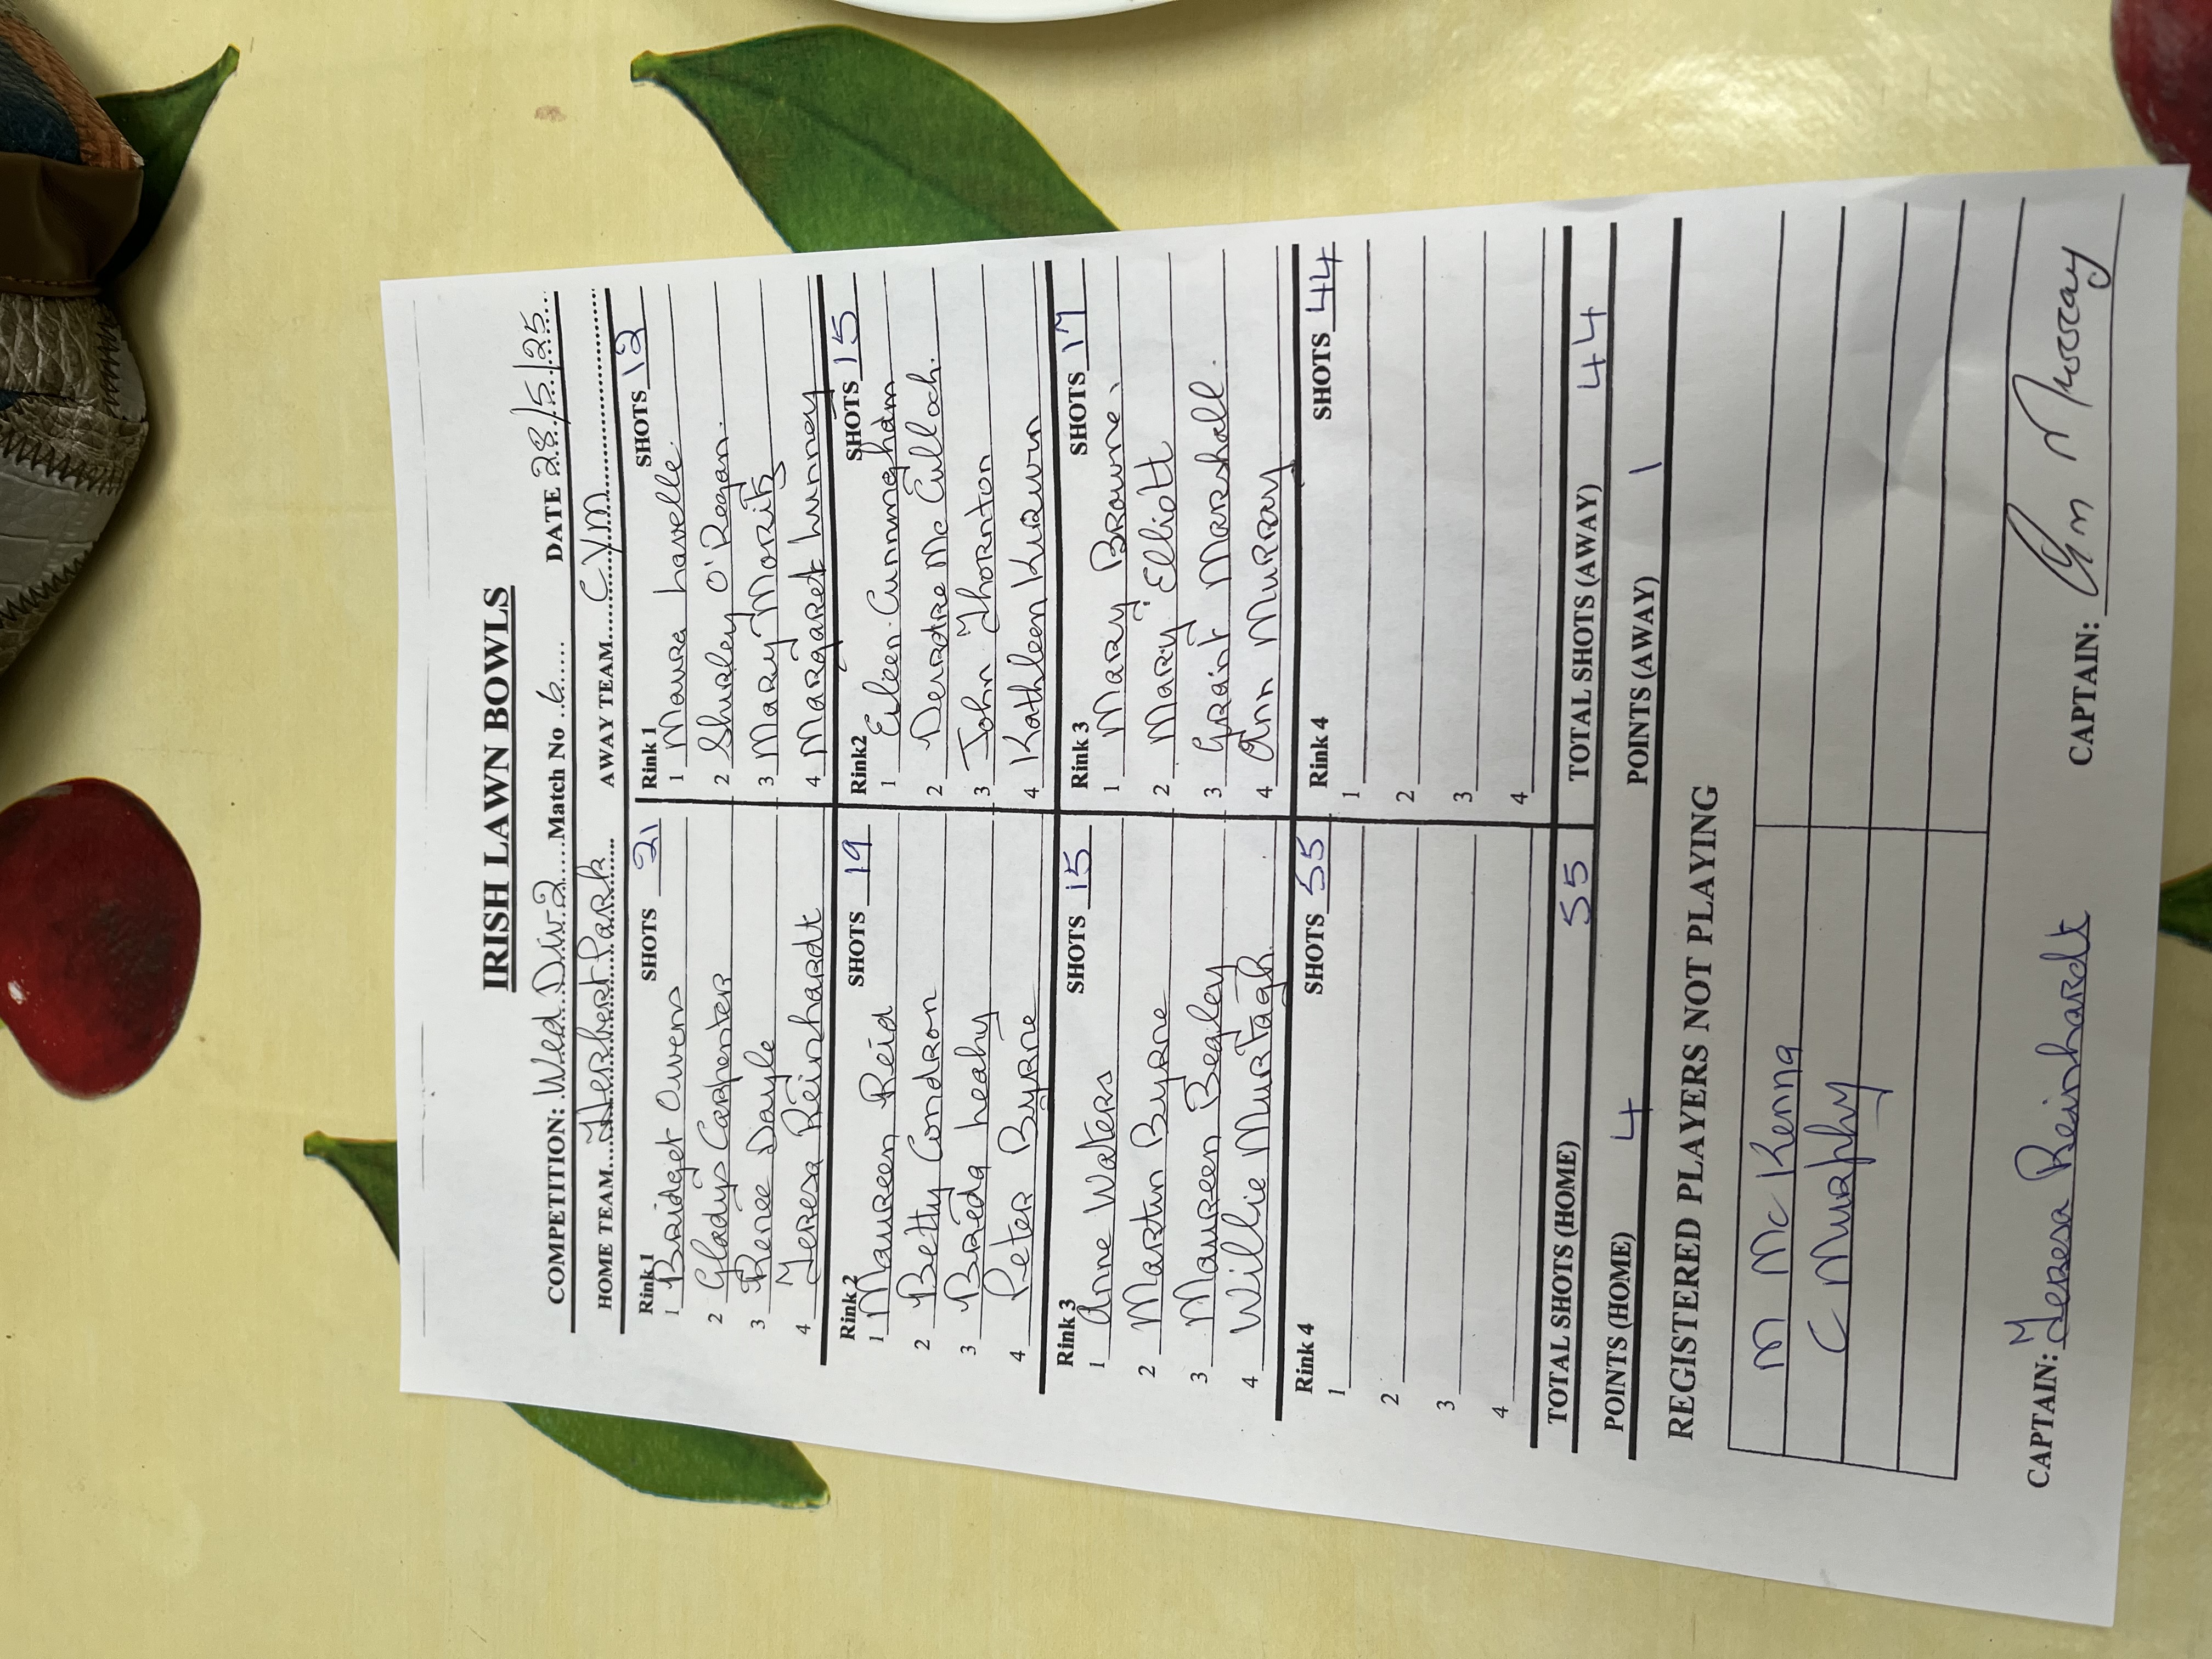 IRISH LAWN BOWLS
COMPETITION: Wed. Div. 2 Match No 6 DATE 28/5/25
HOME TEAM Herbert Park AWAY TEAM C.Y.M
Rink 1 SHOTS 21 Rink 1 SHOTS 12
1 Bridget Owens 1 Maura Lavelle
2 Gladys Carpenter 2 Shirley O'Regan.
3 Renee Doyle 3 Mary Moritz
4 Teresa Reinhardt 4 Margaret Lunney
Rink 2 SHOTS 19 Rink2 SHOTS 15
1 Maureen Reid 1 Eileen Cunningham
2 Betty Condron 2 Deirdre Mc Culloch.
3 Breda Leahy 3 John Thornton
4 Peter Byrne 4 Kathleen Kirwin
Rink 3 SHOTS 15 Rink 3 SHOTS 17
1 Anne Waters 1 Mary Browne.
2 Martin Byrne 2 Mary Elliott
3 Maureen Begley 3 Grant Marshall.
4 Willie Murtagh 4 Ann Murray
Rink 4 SHOTS 55 Rink 4 SHOTS 44
1 1
2 2
3 3
4 4
TOTAL SHOTS (HOME) 55 TOTAL SHOTS (AWAY) 44
POINTS (HOME) 4 POINTS (AWAY) 1
REGISTERED PLAYERS NOT PLAYING
M Mc Kenna
C Murphy
CAPTAIN: Teresa Reinhardt CAPTAIN: Ann Murray